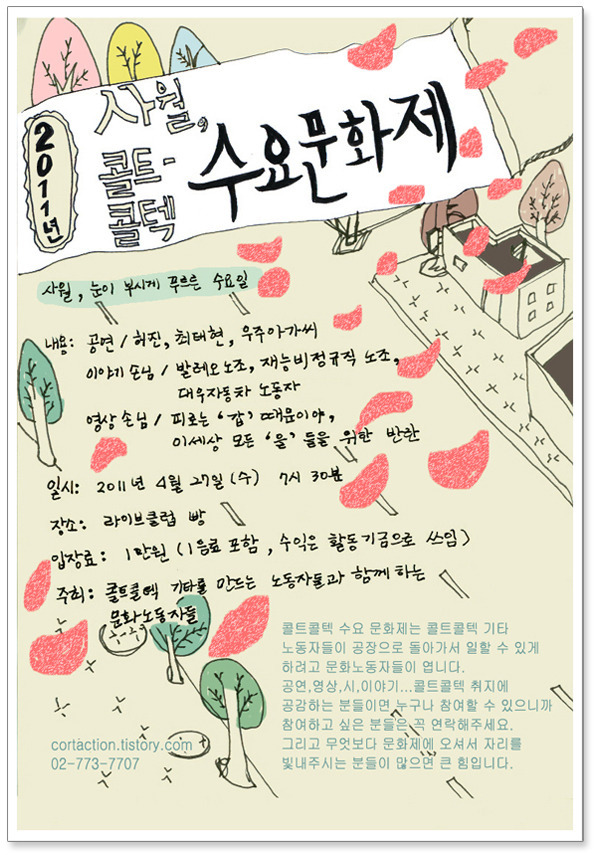 2011년
사월,의
콜트-
콜텍
수요문화제
사월, 눈이 부시게 푸르른 수요일
내용: 공연 / 허진, 최태현, 우주아가씨
이야기 손님 / 발레오노조, 재능비정규직 노조,
대우자동차 노동자
영상 손님 / 피로는 '갑' 때문이야,
이세상 모든 '을' 들을 위한 반란
일시: 2011년 4월 27일 (수) 7시 30분
장소: 라이브클럽 빵
입장료: 1만원 (1음료 포함, 수익은 활동기금으로 쓰임)
주최: 콜트콜텍 기타를 만드는 노동자들과 함께 하는
문화노동자들
콜트콜텍 수요 문화제는 콜트콜텍 기타
노동자들이 공장으로 돌아가서 일할 수 있게
하려고 문화노동자들이 엽니다.
공연,영상,시,이야기...콜트콜텍 취지에
공감하는 분들이면 누구나 참여할 수 있으니까
참여하고 싶은 분들은 꼭 연락해주세요.
그리고 무엇보다 문화제에 오셔서 자리를
빛내주시는 분들이 많으면 큰 힘입니다.
cortaction.tistory.com
02-773-7707